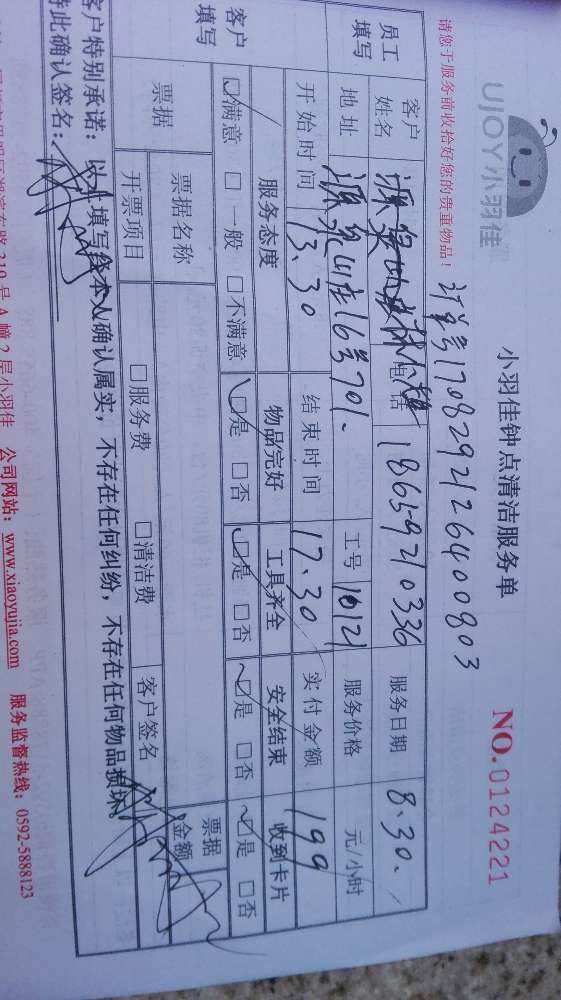 UJOY小羽佳
小羽佳钟点清洁服务单
NO.0124221
请您于服务前收拾好您的贵重物品！
订单号1708292126400803
员工填写 客户姓名 电话 18659210336 服务日期 8.30.
地址 16号701. 工号 10121 服务价格 元/小时
开始时间 13.30 结束时间 17.30 实付金额 199
客户填写 服务态度 物品完好 工具齐全 安全结束 收到卡片
☑满意 □一般 □不满意 ☑是 □否 ☑是 □否 ☑是 □否 ☑是 □否
票据 票据名称 票据金额
开票项目 □服务费 □清洁费 客户签名
客户特别承诺：以上填写经本人确认属实，不存在任何纠纷，不存在任何物品损坏。
特此确认签名：
210号A幢2层小羽佳 公司网站：www.xiaoyujia.com 服务监督热线：0592-5888123